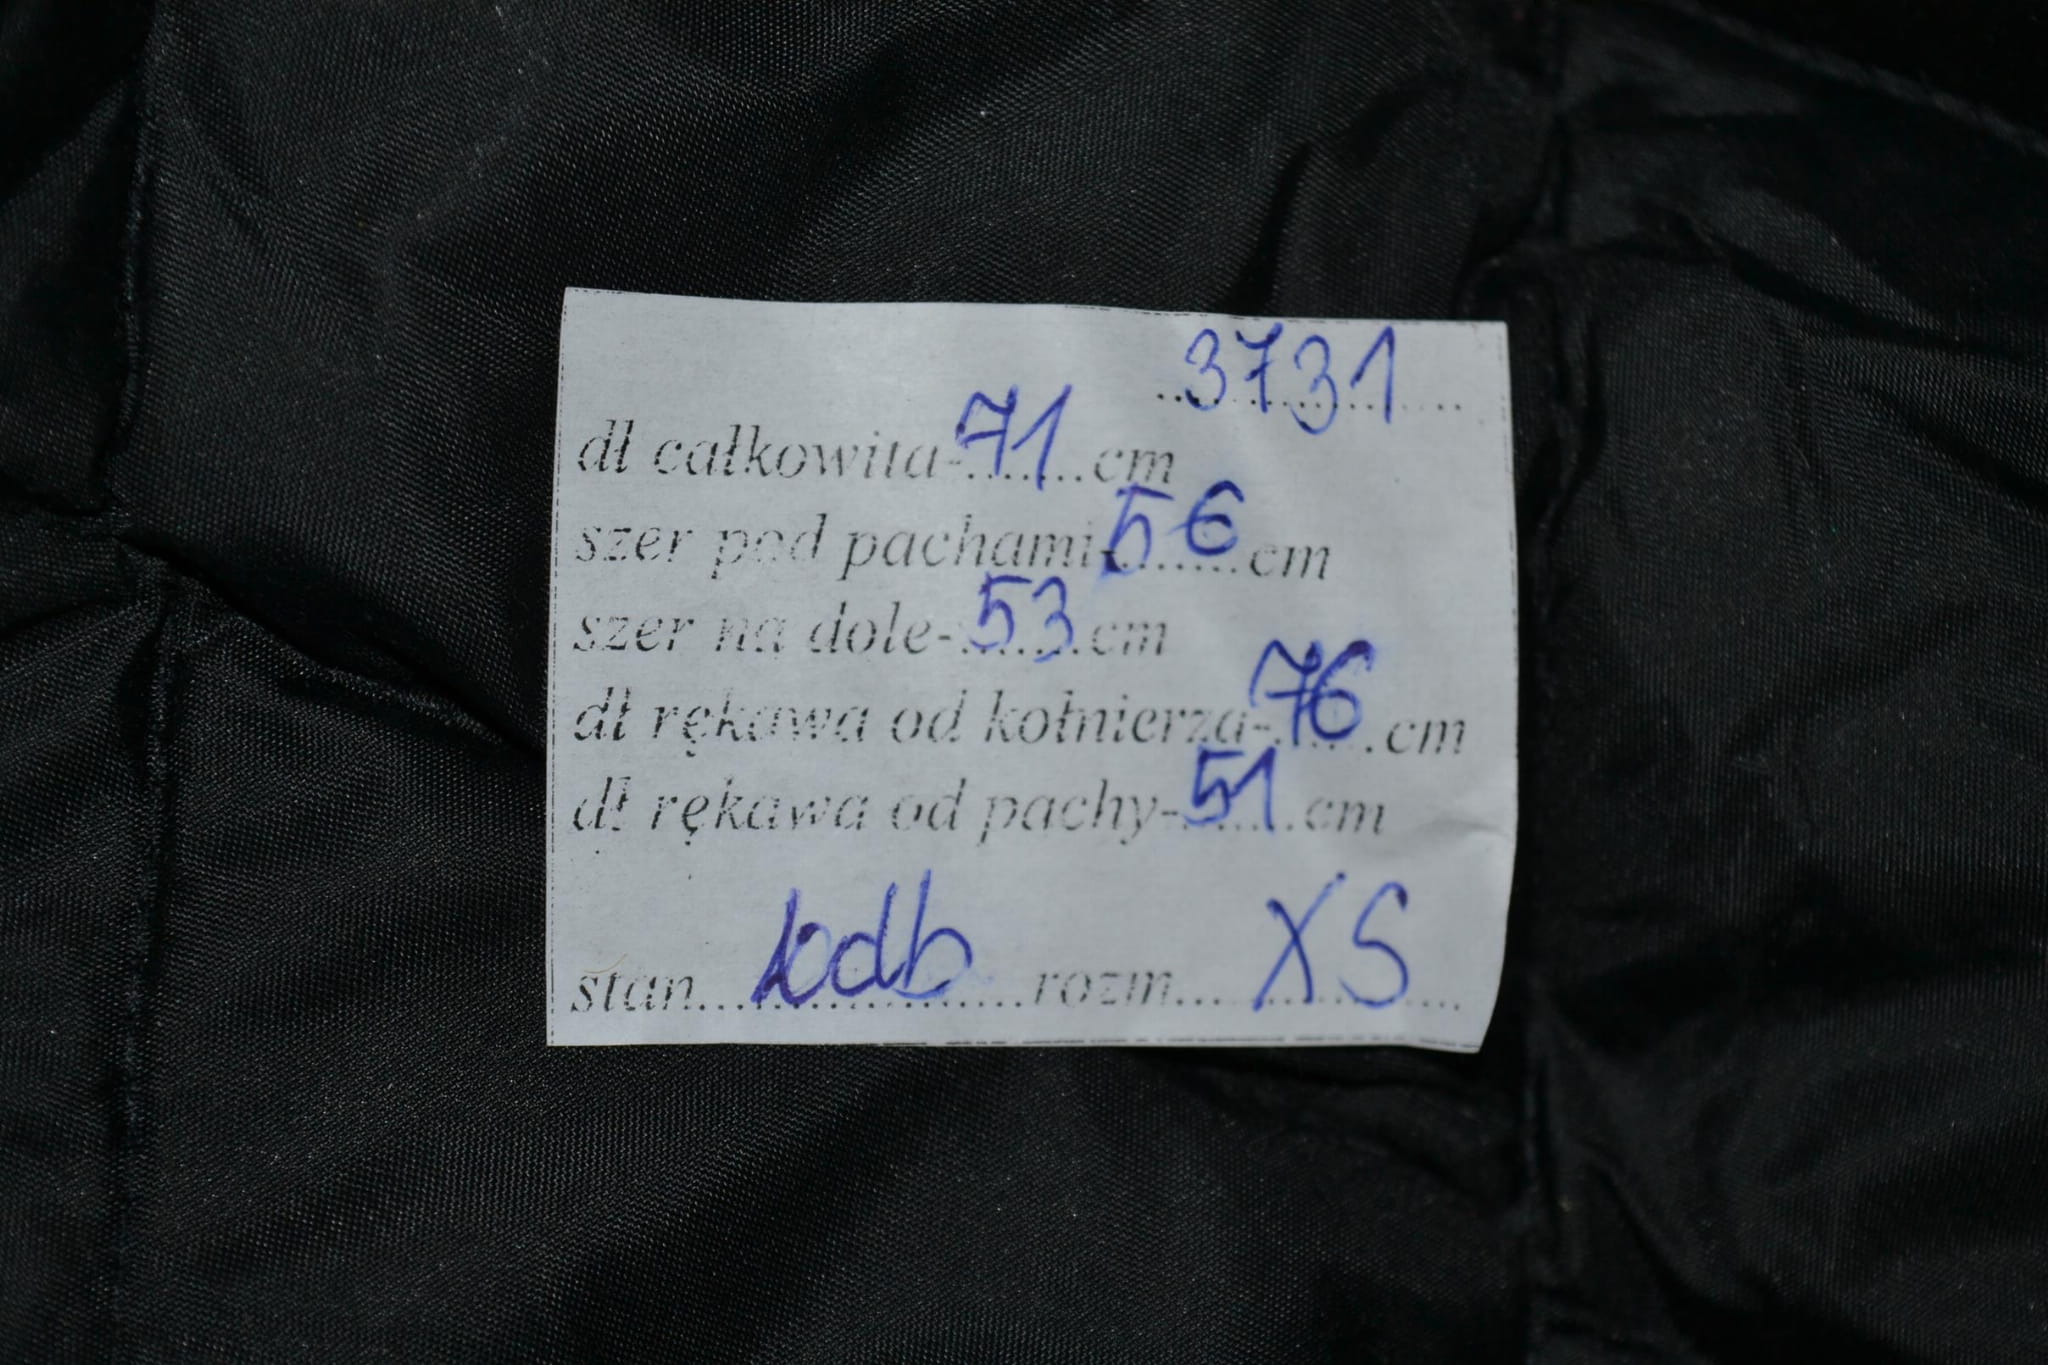 3731
dł całkowita-71cm
szer pod pachami-56cm
szer na dole-53cm
dł rękawa od kołnierza-76cm
dł rękawa od pachy-51cm
stan bdb rozm XS